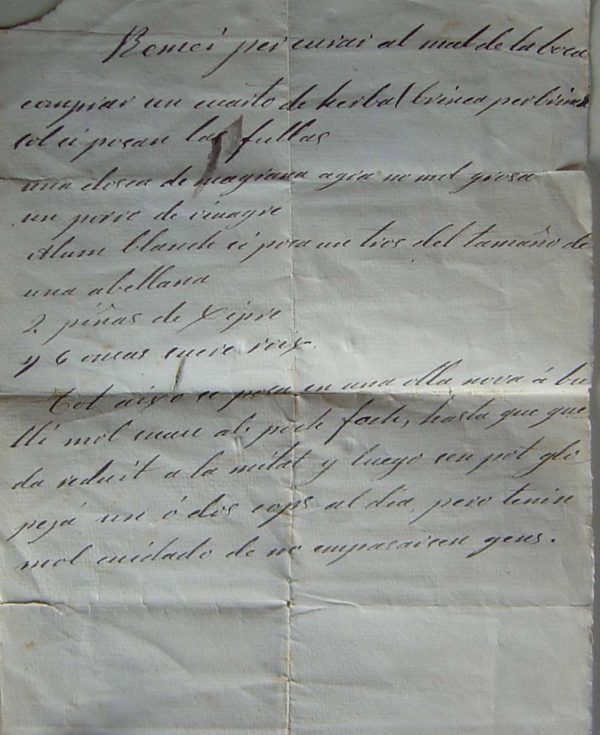 Remei per curar al mal de la boca
comprar un cuarto de herba
sol ci posan las fullas
una closca de magrana agra no mol grosa
un porro de vinagre
Alum blanch ci posa un tros del tamaño de
una abellana
2 piñas de Xipre
y 6 onsas sucre roix.
Tot aixo se posa en una olla nova á bu
lli mol cuan ab poch foch, hasta que que
da reduit a la mitat y luego sen pot glo
pejá un ó dos cops al dia, pero tenin
mol cuidado de no empasarsen gens.